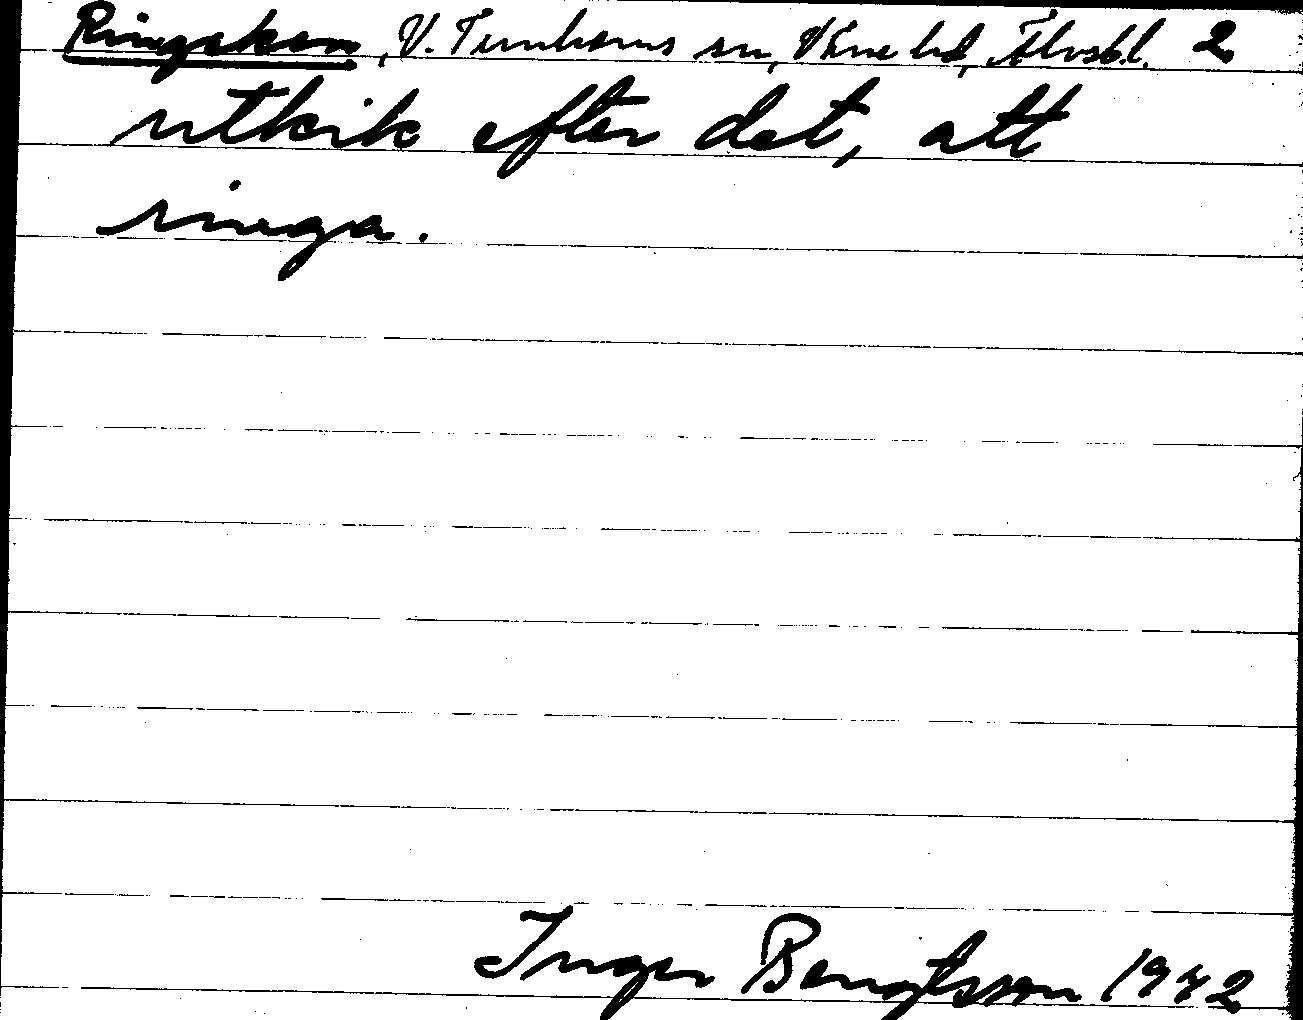 Ringekon, V. Tunhems sn, Väne hd, Älvsb.l. 2
utkik efter det, att
ringa.
Inger Bengtsson 1942